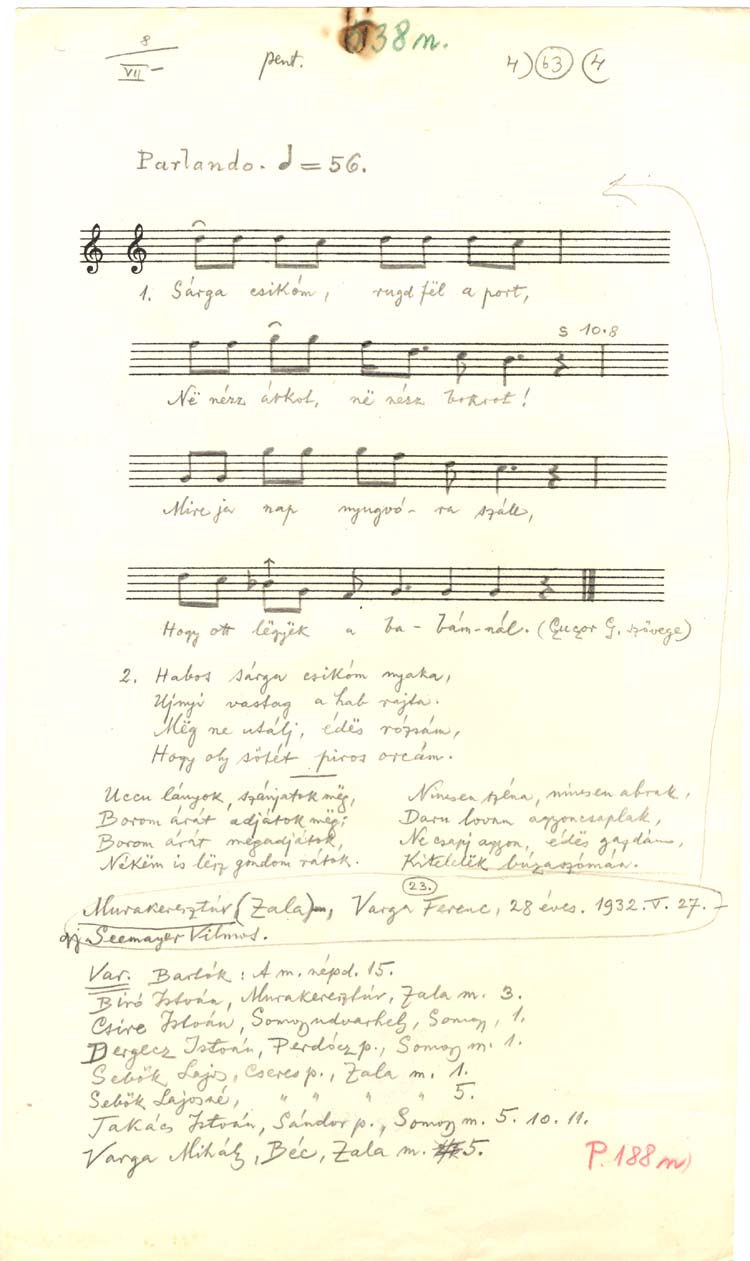 8
VII
pent.
638 n.
4) 63 (4
Parlando. = 56.
1. Sárga csikóm, rugd fël a port,
s 10.8
Në nézz árkot, në nézz bokrot!
Mire ja nap nyugvó-ra száll,
Hogy ott lëgyëk a ba-bám-nál. (Czuczor G. szövege)
2. Habos sárga csikóm nyaka,
Ujnyi vastag a hab rajta.
Mëg ne utálj, édës rózsám,
Hogy oly sötét piros orcám.
Uccu lányok, szánjatok mëg,
Borom árát adjátok mëg;
Borom árát mëgadjátok,
Nékëm is lësz gondom rátok.
Nincsen széna, nincsen abrak,
Daru lovam agyoncsaplak,
Ne csapj agyon, édës gazdám,
Kitelelëk búzaszómán.
23.
Murakeresztúr (Zala), Varga Ferenc, 28 éves. 1932. V. 27. -
gy. Seemayer Vilmos.
Var. Bartók: A m. népd. 15.
Biró István, Murakeresztúr, Zala m. 3.
Csire István, Somogyudvarhely, Somogy, 1.
Dergecz István, Perdócz p., Somogy m. 1.
Sebők Lajos, Cseres p., Zala m. 1.
Sebők Lajosné, " " " " 5.
Takács István, Sándor p., Somogy m. 5. 10. 11.
Varga Mihály, Béc, Zala m. 5.
P. 188 n